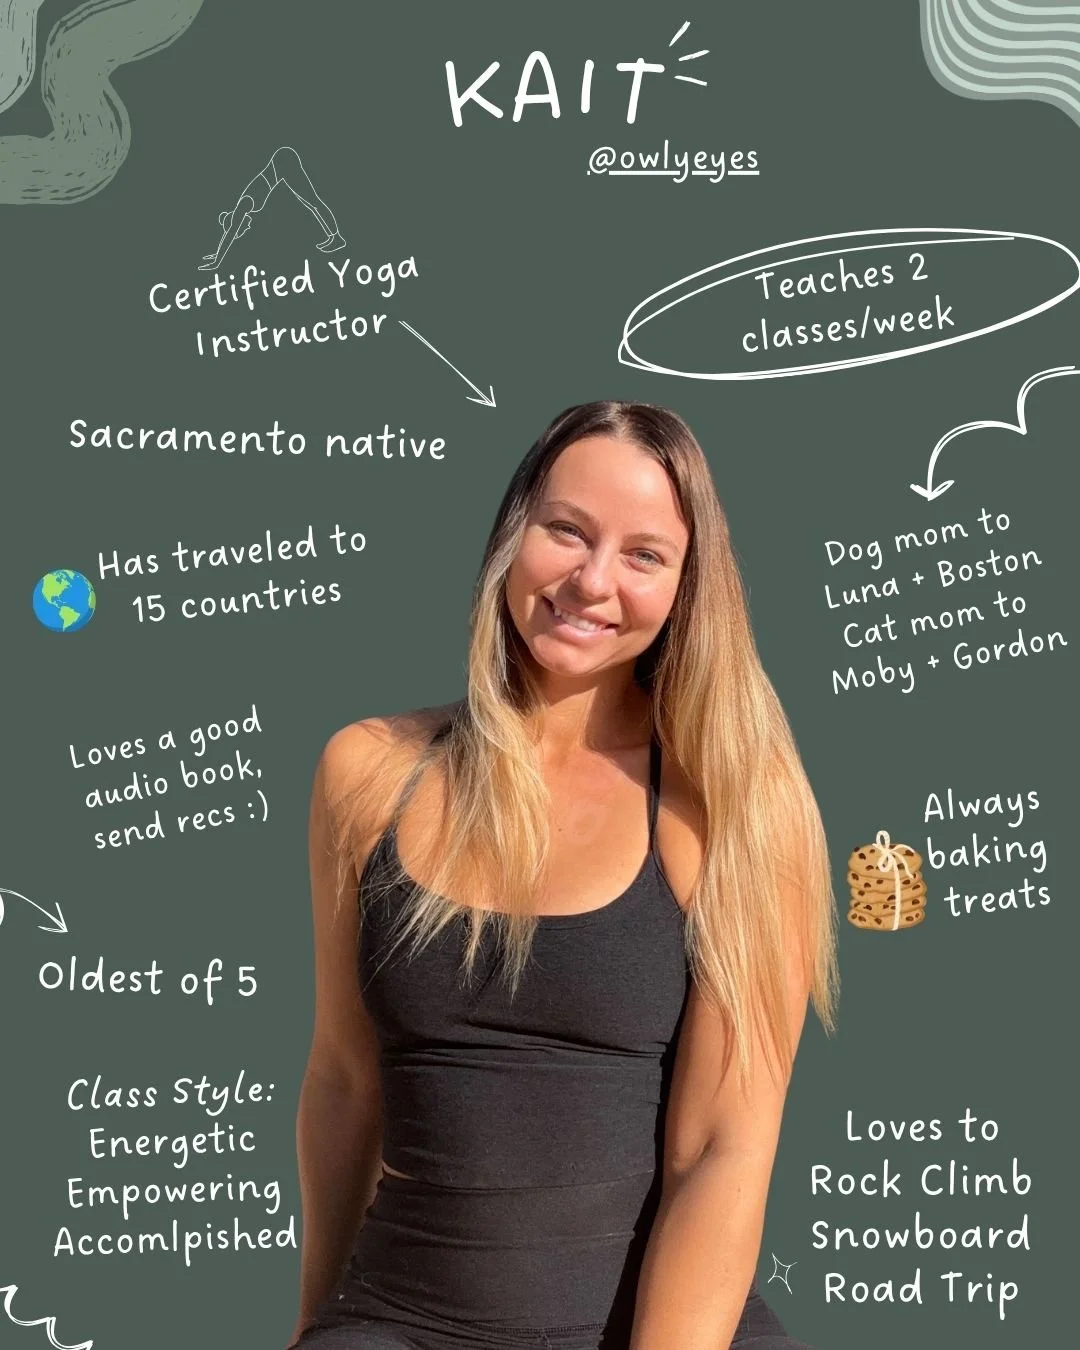 KAIT
@owlyeyes
Certified Yoga
Instructor
Teaches 2
classes/week
Sacramento native
Has traveled to
15 countries
Dog mom to
Luna + Boston
Cat mom to
Moby + Gordon
Loves a good
audio book,
send recs :)
Always
baking
treats
Oldest of 5
Class Style:
Energetic
Empowering
Accomlpished
Loves to
Rock Climb
Snowboard
Road Trip